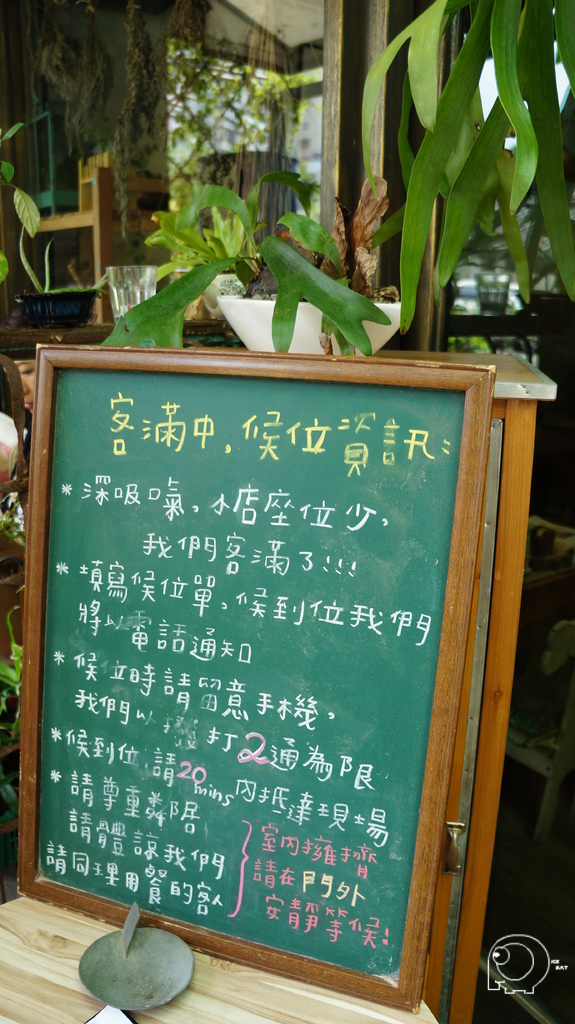 客滿中,候位資訊:
*深吸口氣,小店座位少,
我們客滿了!!!
*填寫候位單,候到位我們
將以電話通知
*候位時請留意手機,
我們以撥打2通為限
*候到位,請20mins內抵達現場
*請尊重鄰居
請體諒我們
請同理用餐的客人
室內擁擠
請在門外
安靜等候!
ICE
EAT